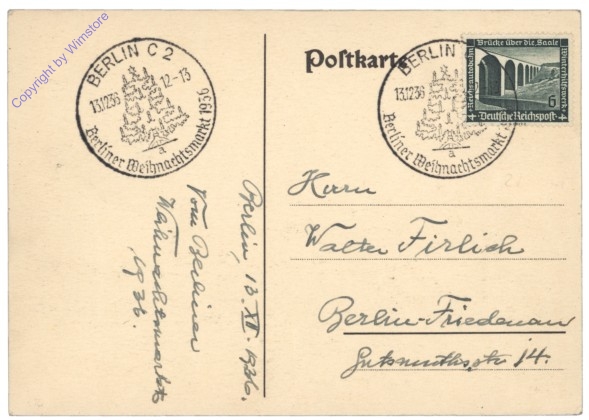 Copyright by Wimstore
BERLIN C 2
13.12.36
12-13
Berliner Weihnachtsmarkt 1936
a
Postkarte
BERLIN
13.12.36
Berliner Weihnachtsmarkt
a
Brücke über die Saale
Reichsautobahn
Winterhilfswerk
6
Deutsche Reichspost
Herrn
Walter Firlich
Berlin-Friedenau
Gutsmuthsstr 14.
Berlin, 13. XII. 1936.
Vom Berliner
Weihnachtsmarkt
1936.